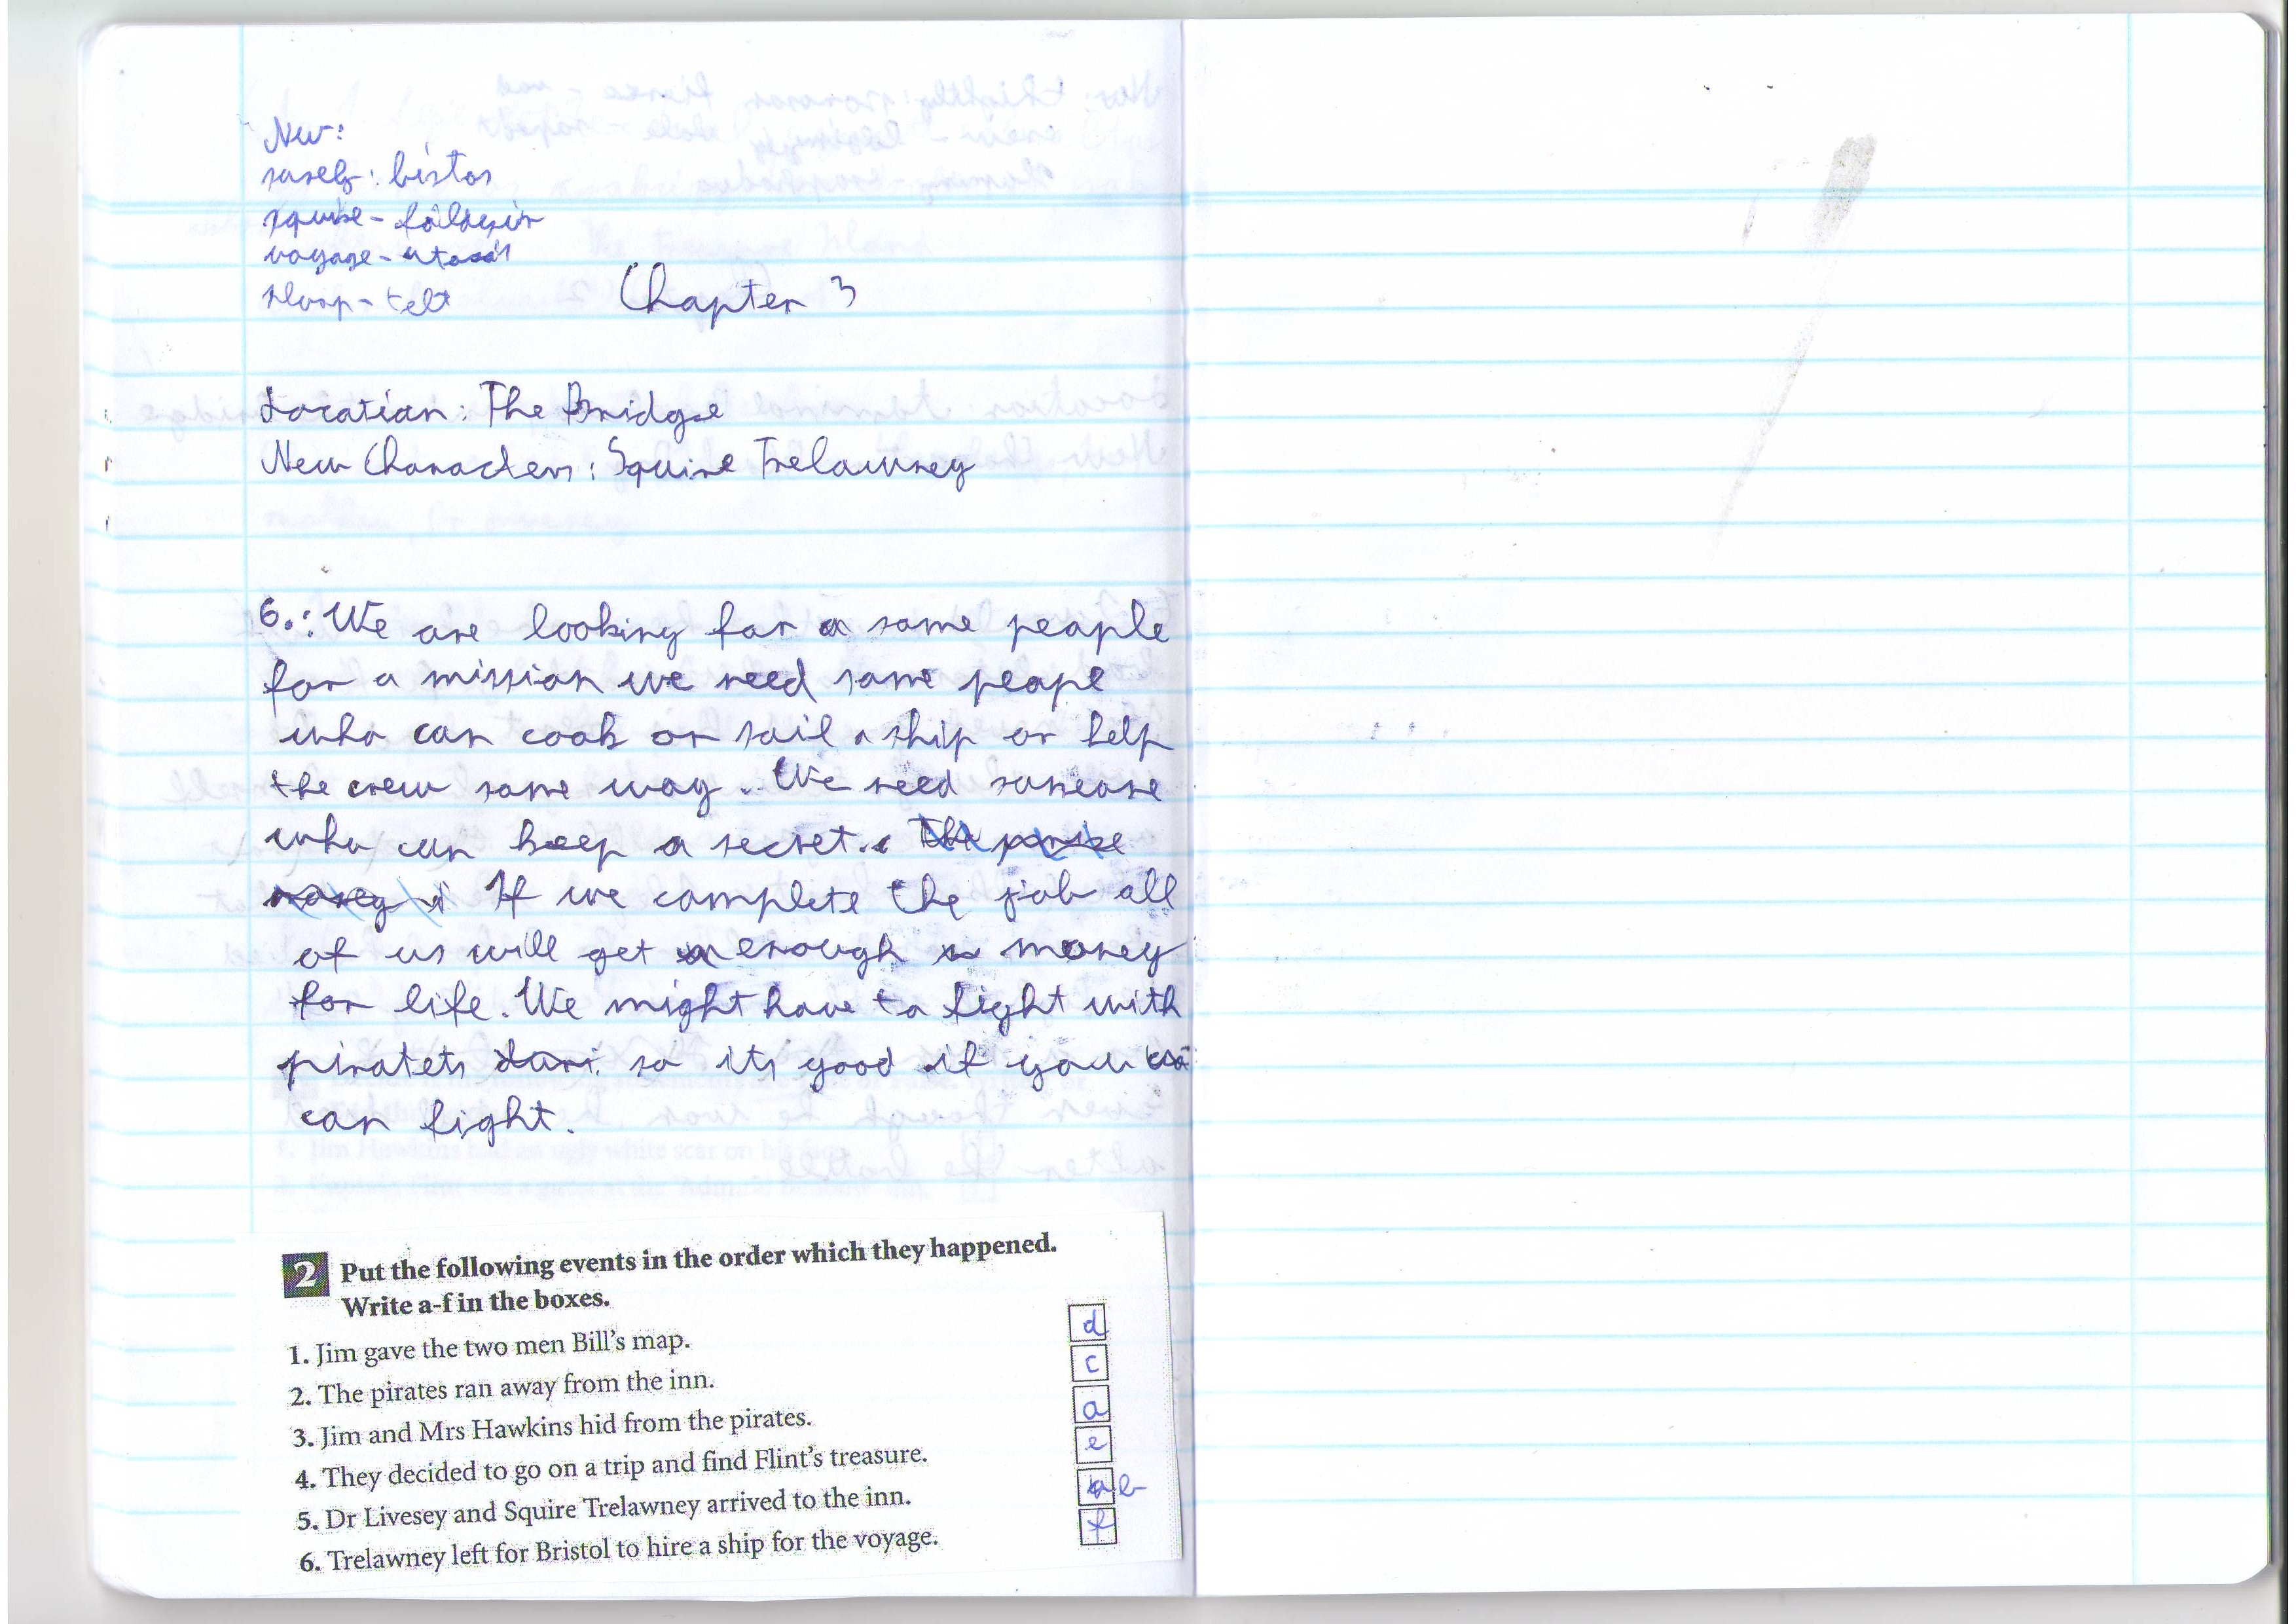 New:
surely: biztos
squire - földesúr
voyage - utazás
sloop - telt
Chapter 3
Location: The Bridge
New Characters: Squire Trelawney
6.: We are looking for some people
for a mission we need some peope
who can cook or sail a ship or help
the crew some way. We need someone
who can keep a secret. The
money If we complete the job all
of us will get enough money
for life. We might have to fight with
piratets so its good if you
can fight.
2 Put the following events in the order which they happened.
Write a-f in the boxes.
1. Jim gave the two men Bill's map. d
2. The pirates ran away from the inn. c
3. Jim and Mrs Hawkins hid from the pirates. a
4. They decided to go on a trip and find Flint's treasure. e
5. Dr Livesey and Squire Trelawney arrived to the inn. b
6. Trelawney left for Bristol to hire a ship for the voyage. f